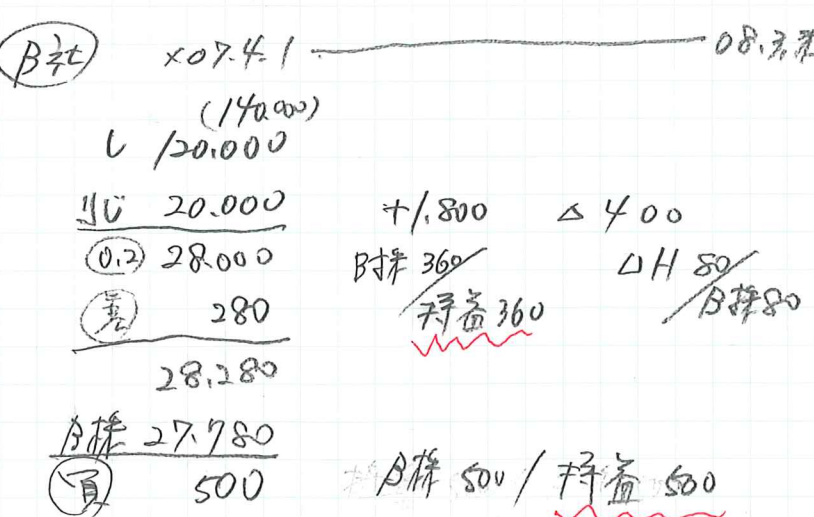 B社 ×07.4.1 08.3.末
(140.000)
し 120.000
リじ 20.000 +1.800 △400
0.2 28.000 B株 360/持益 360 △H 80/B株 80
差 280
28.280
B株 27.780
買 500 B株 500/持益 500